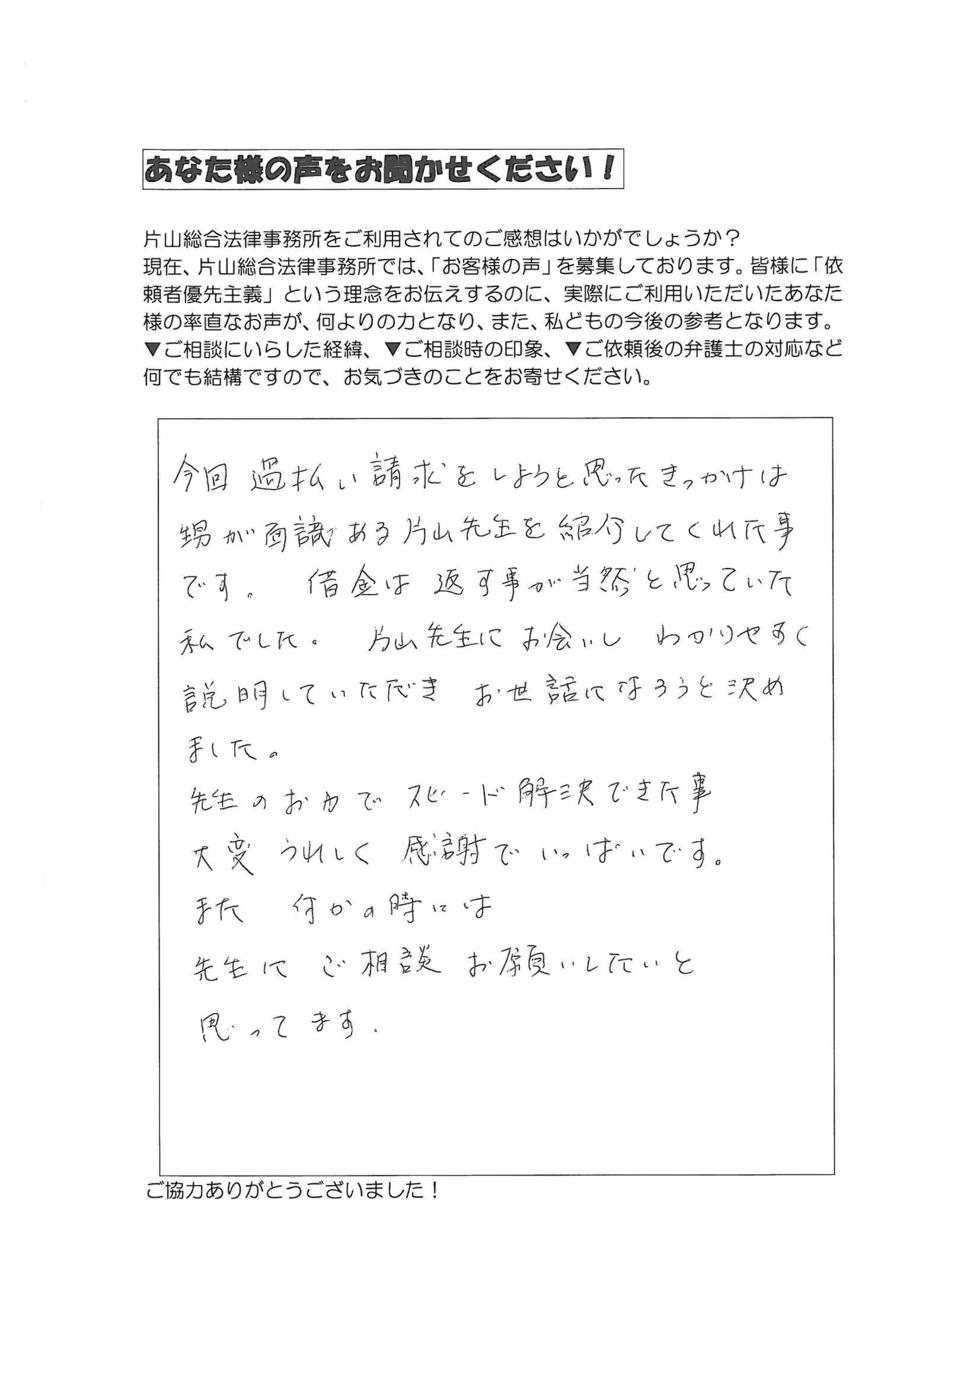 あなた様の声をお聞かせください！
片山総合法律事務所をご利用されてのご感想はいかがでしょうか？
現在、片山総合法律事務所では、「お客様の声」を募集しております。皆様に「依
頼者優先主義」という理念をお伝えするのに、実際にご利用いただいたあなた
様の率直なお声が、何よりの力となり、また、私どもの今後の参考となります。
▼ご相談にいらした経緯、▼ご相談時の印象、▼ご依頼後の弁護士の対応など
何でも結構ですので、お気づきのことをお寄せください。
今回 過払い請求をしようと思ったきっかけは
甥が面識ある片山先生を紹介してくれた事
です。 借金は返す事が当然と思っていた
私でした。 片山先生にお会いし わかりやすく
説明していただき お世話になろうと決め
ました。
先生のお力で スピード解決できた事
大変 うれしく 感謝でいっぱいです。
また 何かの時には
先生に ご相談 お願いしたいと
思ってます.
ご協力ありがとうございました！